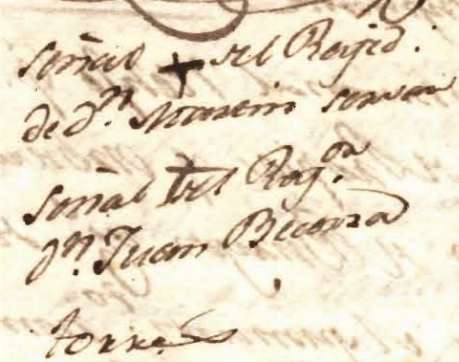 señal + del Regid.
de dn. Martin serván
señal + del Reg.or
dn. Juan Becerra
torres